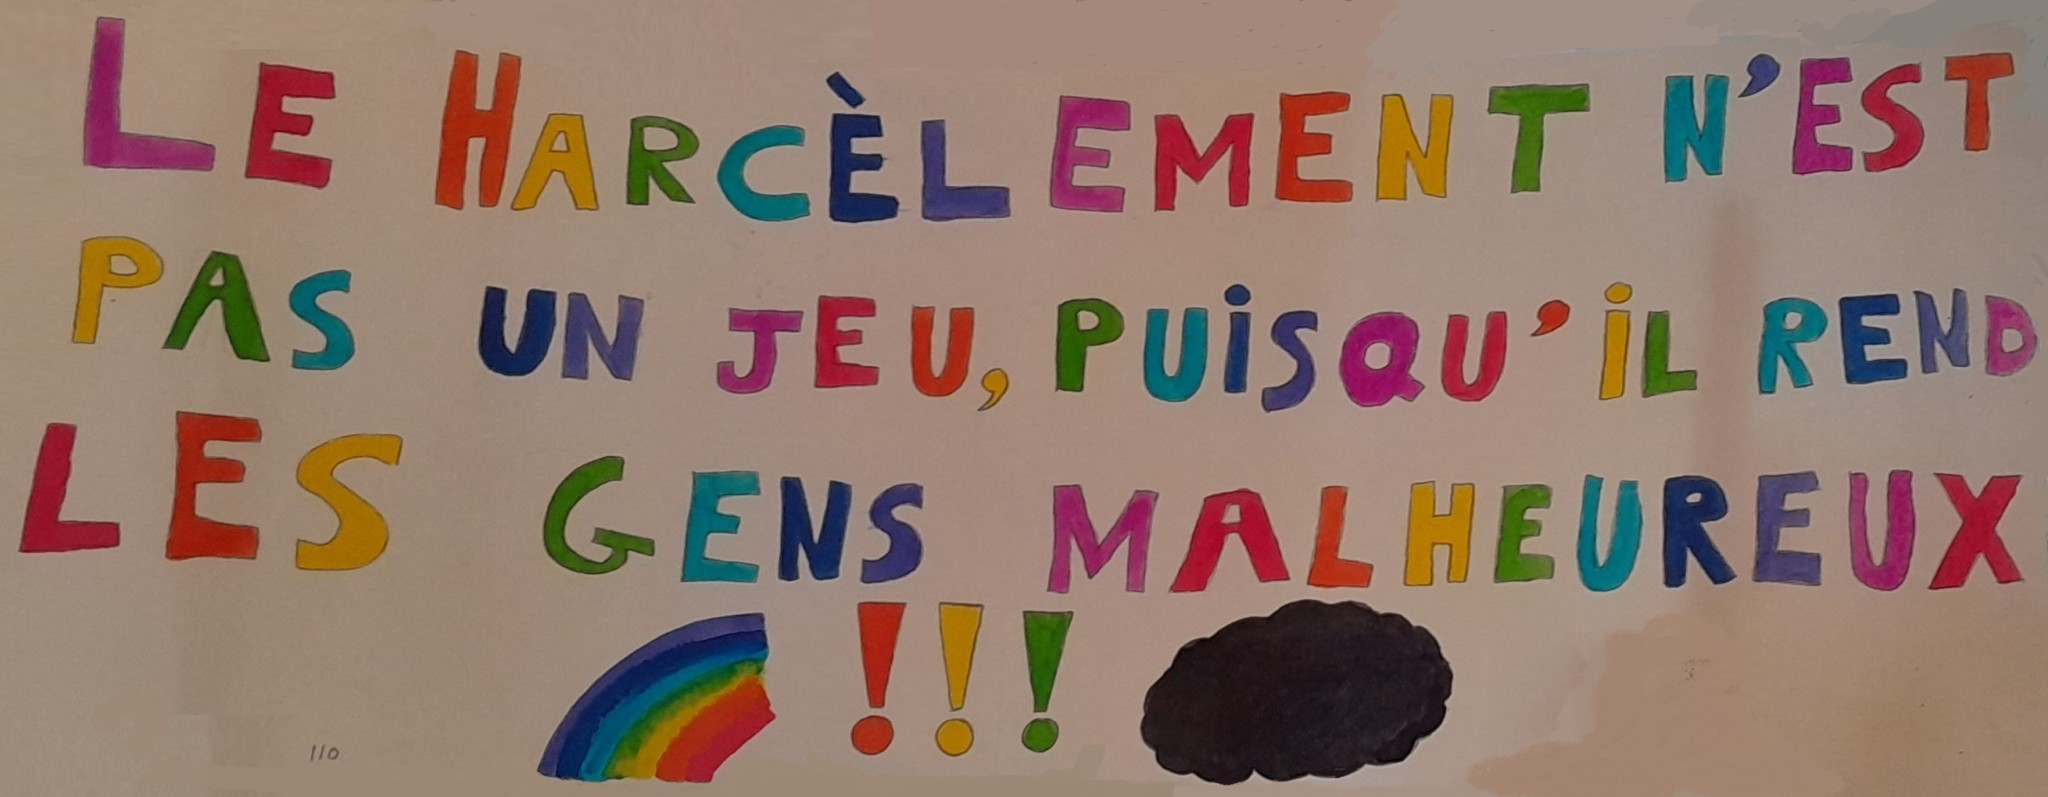 LE HARCÈLEMENT N'EST
PAS UN JEU, PUISQU'iL REND
LES GENS MALHEUREUX
!!!
110